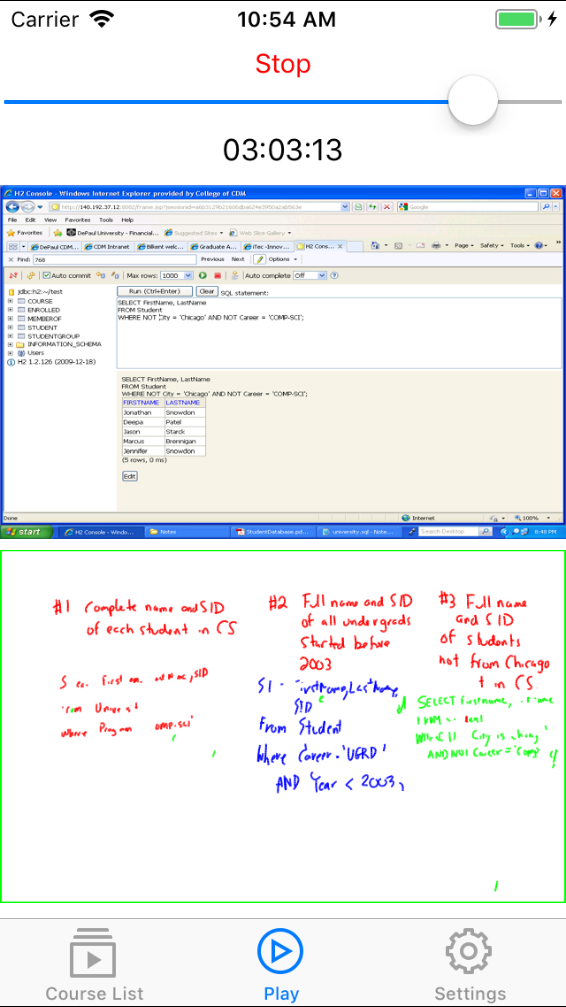 Carrier 10:54 AM
Stop
03:03:13
H2 Console - Windows Internet Explorer provided by College of CDM
Google
File Edit View Favorites Tools Help
Favorites DePaul University - Financial... Suggested Sites Web Slice Gallery
DePaul CDM... CDM Intranet Bilkent welc... Graduate A... iTec-Innov... H2 Cons... Page Safety Tools
Find: 768 Previous Next Options
Auto commit Max rows: 1000 Auto complete Off
jdbc:h2:~/test
COURSE
ENROLLED
MEMBEROF
STUDENT
STUDENTGROUP
INFORMATION_SCHEMA
Users
H2 1.2.126 (2009-12-18)
Run (Ctrl+Enter) Clear SQL statement:
SELECT FirstName, LastName
FROM Student
WHERE NOT City = 'Chicago' AND NOT Career = 'COMP-SCI';
SELECT FirstName, LastName
FROM Student
WHERE NOT City = 'Chicago' AND NOT Career = 'COMP-SCI';
FIRSTNAME LASTNAME
Jonathan Snowdon
Deepa Patel
Jason Starck
Marcus Brennigan
Jennifer Snowdon
(5 rows, 0 ms)
Edit
Done Internet 100%
start H2 Console - Windo... Notes StudentDatabase.pd... university.sql - Note... Search Desktop 6:48 PM
#1 Complete name and SID
of each student in CS
where Program
#2 Full name and SID
of all undergrads
Started before
2003
SID
From Student
Where Career = 'UGRD'
AND Year < 2003;
#3 Full name
and SID
of students
not from Chicago
in CS
SELECT Firstname,
City
AND NOT Career =
Course List Play Settings